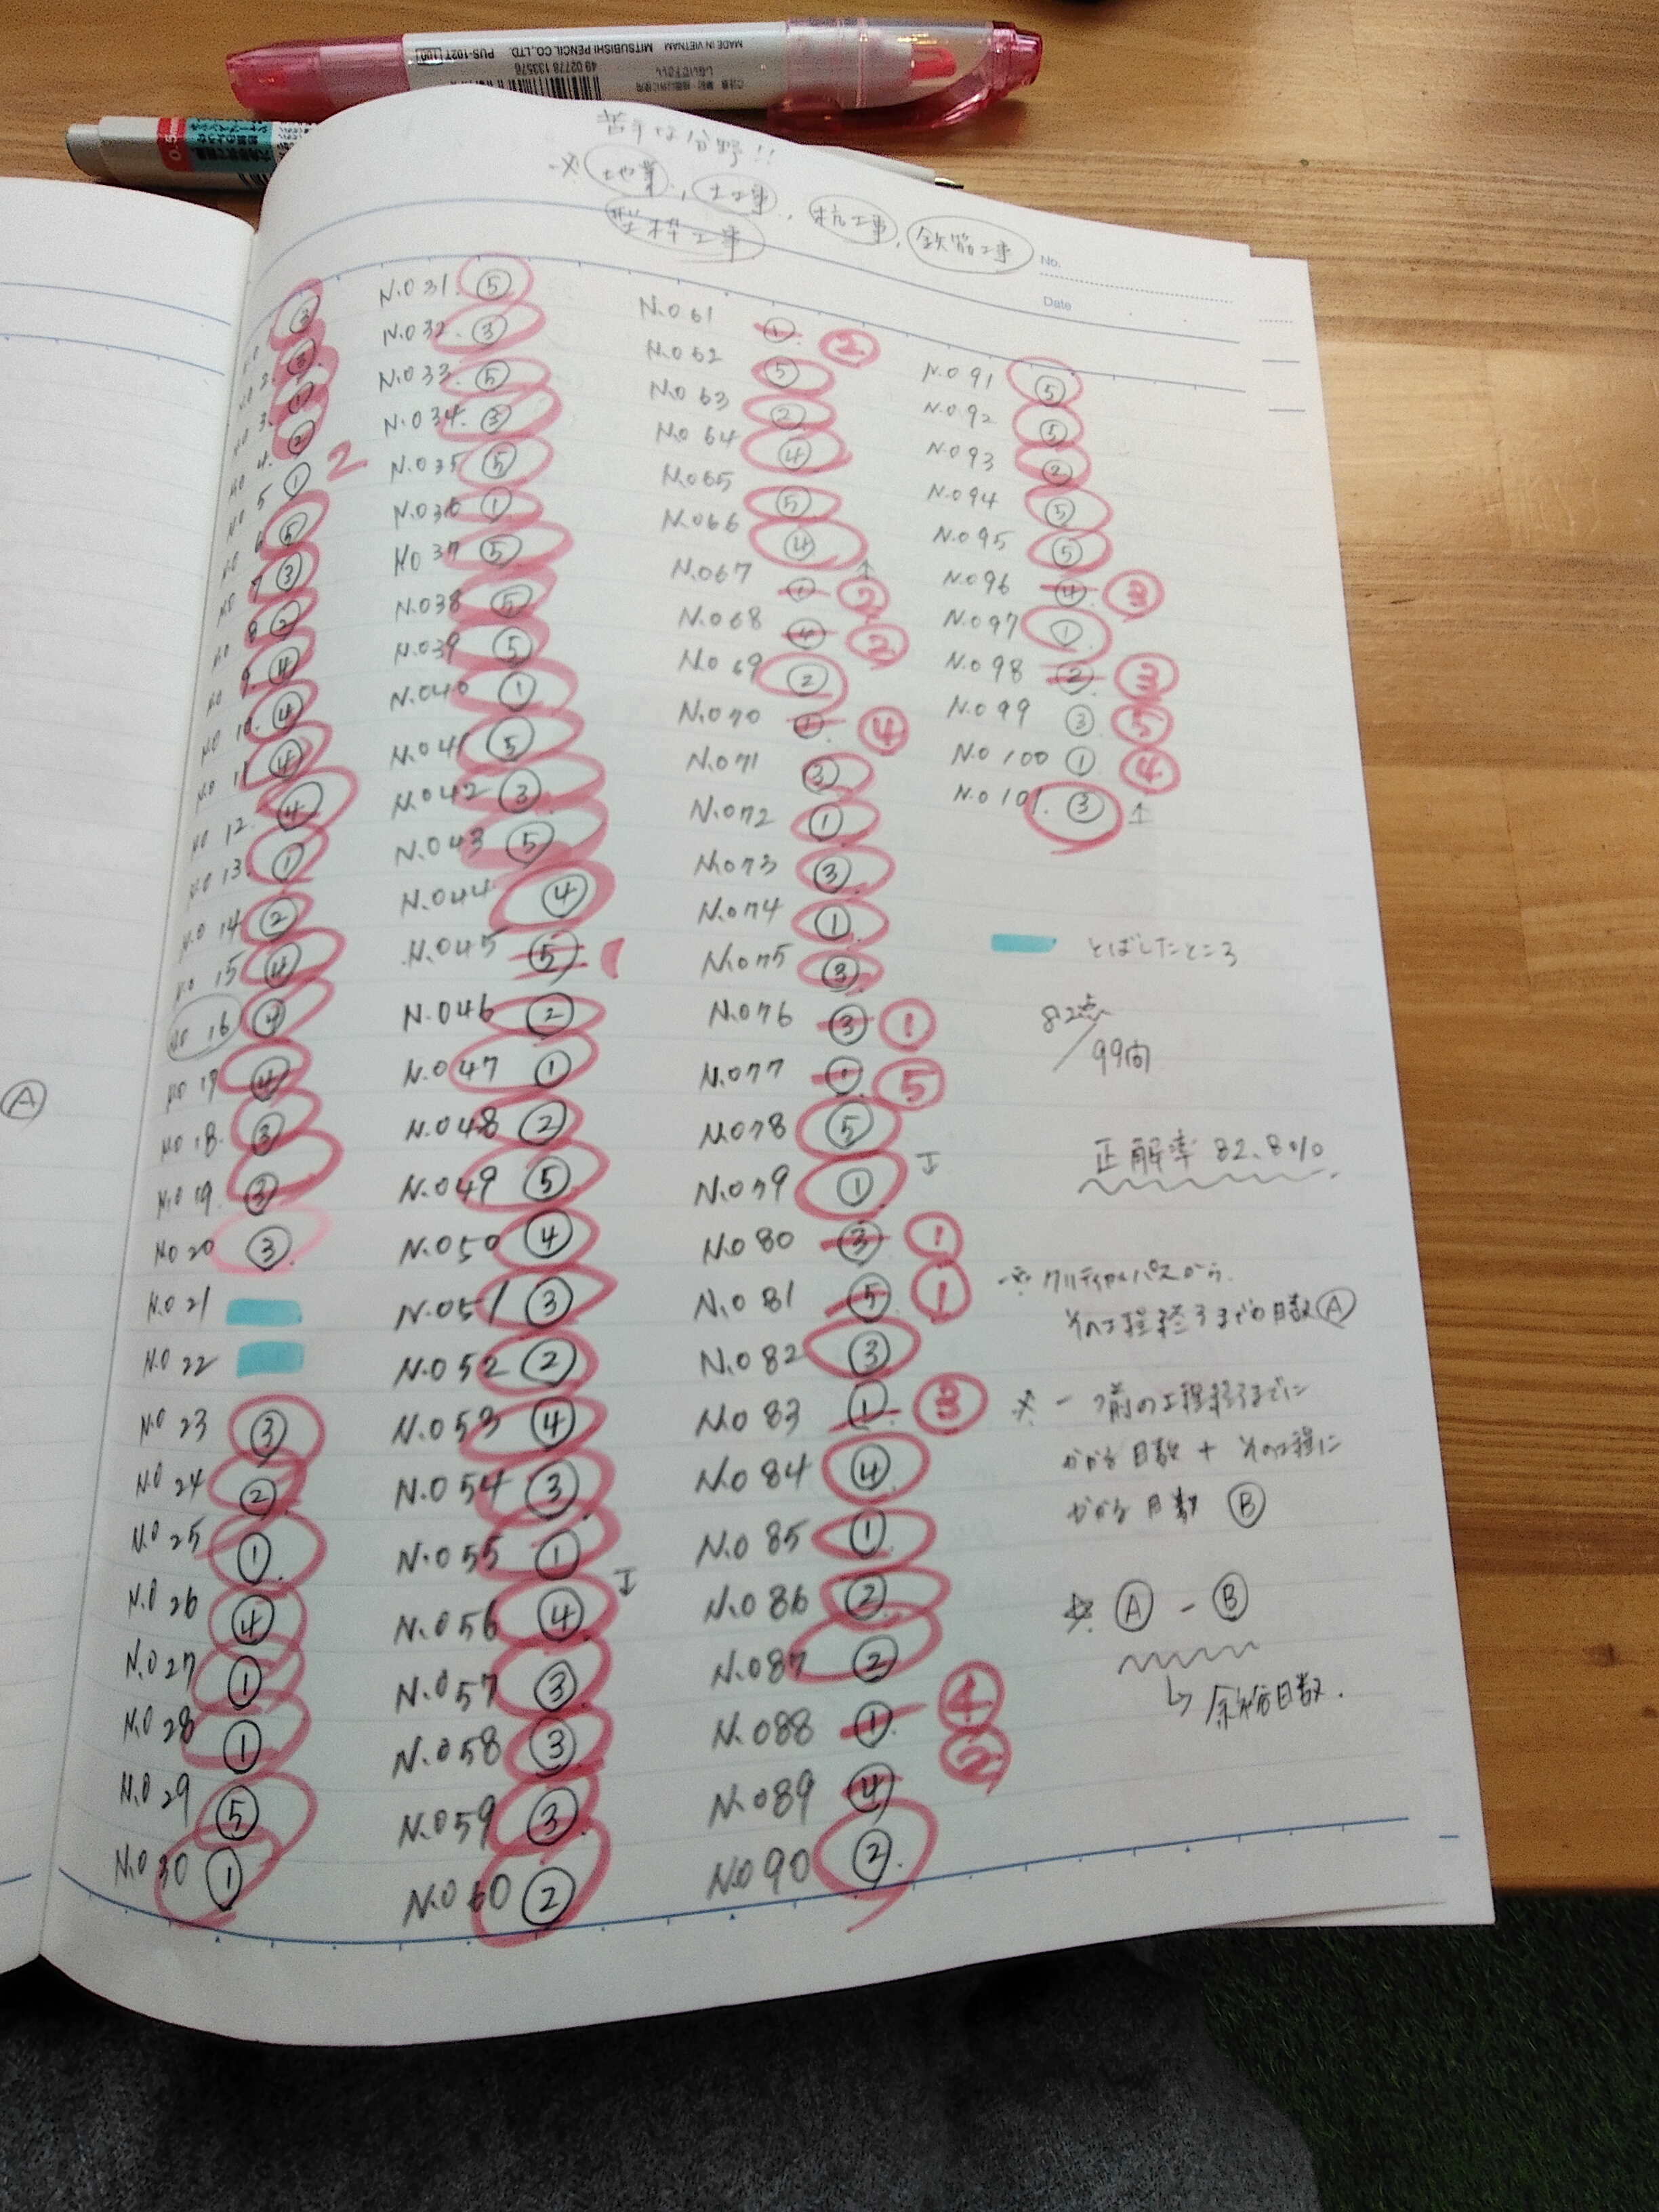 MADE IN VIETNAM
MITSUBISHI PENCIL CO.,LTD. PUS-102T
49 02778 133576
0.5mm
苦手な分野!!
※ 地業, 土工事, 杭工事, 鉄筋工事
型枠工事
No.
Date
③
2. ③
No 3. ①
No 4. ②
No 5 ① 2
No 6 ⑤
No 7 ③
No 8 ②
No 9. ④
No 10. ④
No 11 ④
No 12. ④
No 13. ①
No 14 ②
No 15 ④
No 16 ④
No 17 ④
No 18. ③
No 19. ③
No 20 ③
No 21
No 22
No 23 ③
No 24 ②
No 25 ①
No 26 ④
No 27 ①
No 28 ①
No 29 ⑤
No 30 ①
No 31. ⑤
No 32. ③
No 33. ⑤
No 34. ③
No 35 ⑤
No 36 ①
No 37 ⑤
No 38 ⑤
No 39 ⑤
No 40 ①
No 41 ⑤
No 42 ③
No 43 ⑤
No 44 ④
No 45 ⑤ 1
No 46 ②
No 47 ①
No 48 ②
No 49 ⑤
No 50 ④
No 51 ③
No 52 ②
No 53 ④
No 54 ③
No 55 ①
No 56 ④
No 57 ③
No 58 ③
No 59 ③
No 60 ②
No 61 ① ②
No 62 ⑤
No 63 ②
No 64 ④
No 65 ⑤
No 66 ④
No 67 ① ②
No 68 ④ ②
No 69 ②
No 70 ① ④
No 71 ③
No 72 ①
No 73 ③
No 74 ①
No 75 ③
No 76 ③ ①
No 77 ① ⑤
No 78 ⑤
No 79 ①
No 80 ③ ①
No 81 ⑤ ①
No 82 ③
No 83 ① ③
No 84 ④
No 85 ①
No 86 ②
No 87 ②
No 88 ① ④
No 89 ④ ②
No 90 ②
No 91 ⑤
No 92 ⑤
No 93 ②
No 94 ⑤
No 95 ⑤
No 96 ④ ③
No 97 ①
No 98 ② ③
No 99 ③ ⑤
No 100 ① ④
No 101. ③
とばしたところ
82点
/ 99問
正解率 82.8%
※ クリティカルパスから
その工程終了までの日数 Ⓐ
※ 一つ前の工程終了までに
かかる日数 + その工程に
かかる日数 Ⓑ
☆ Ⓐ - Ⓑ
↳ 余裕日数.
Ⓐ